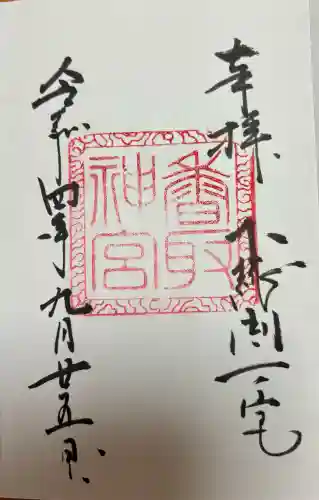 奉拝 下総国一之宮
香取
神宮
令和四年九月廿五日